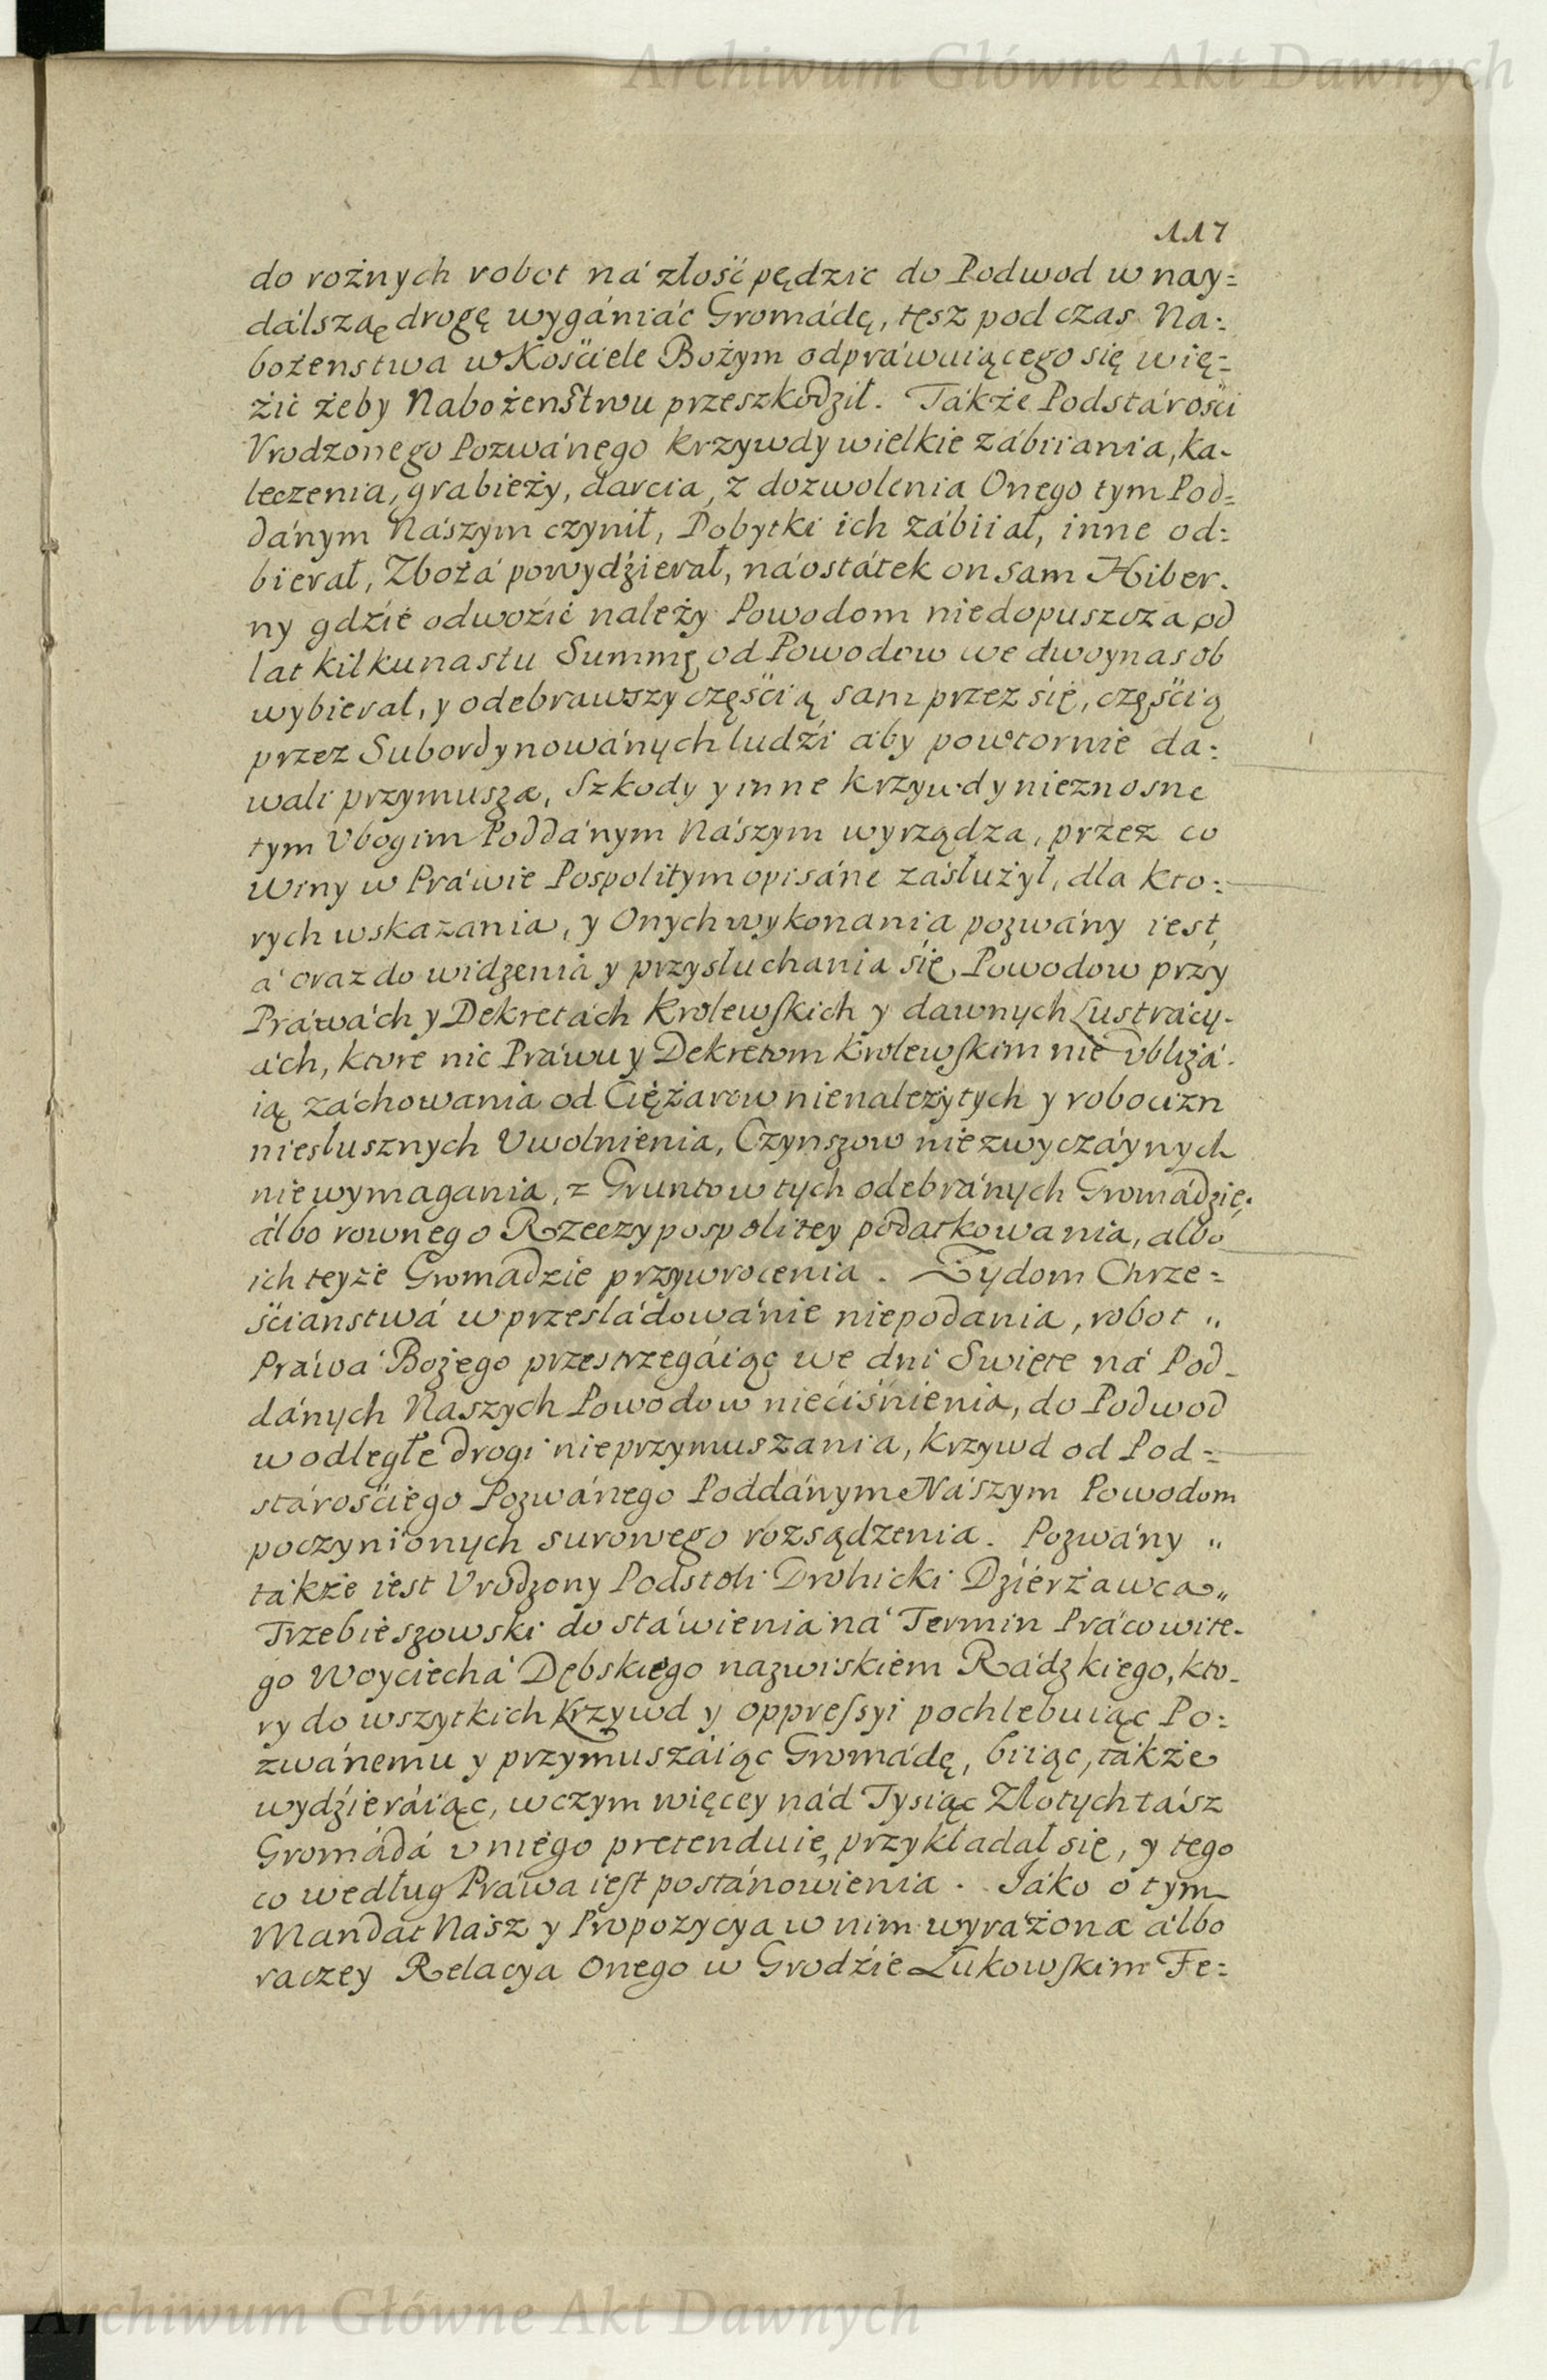 Archiwum Główne Akt Dawnych
117
do rożnych robot ná złość pędzic do Podwod w nay=
dálszą drogę wygániáć Gromádę, tęsz pod czas Na=
bożenstwa w Kościele Bożym odpráwuiącego się wię=
zić żeby Nabożeństwu przeszkodził. Tákże Podstárości
Vrodzonego Pozwánego krzywdy wielkie zábiiania, ka-
leczenia, grabieży, darcia, z dozwolenia Onego tym Pod=
dánym Nászym czynił, Dobytki ich zábiiał, inne od=
bierał, Zbożá powydźierał, náostátek on sam Hiber-
ny gdzie odwozić należy Powodom niedopuszcza od
lat kilkunastu Summę od Powodow we dwoynasob
wybierał, y odebrawszy częścią sam przez się, częścią
przez Subordynowánych ludźi áby powtornie da=
wali przymusza, Szkody y inne krzywdy nieznosne
tym Vbogim Poddánym Nászym wyrządza, przez co
winy w Práwie Pospolitym opisáne zásłużył, dla kto=
rych wskazania, y Onych wykonania pozwány iest,
á oraz do widzenia y przysłuchania się, Powodow przy
Práwách y Dekretách Krolewskich y dawnych Lustrácy-
ách, ktore nic Práwu y Dekretom Krolewskim nie vbliżá-
ią záchowania od Ciężarow nienależytych y robocizn
niesłusznych Uwolnienia, Czynszow niezwyczáynych
niewymagania, z Gruntow tych odebránych Gromádzie,
álbo rownego Rzeczypospolitey podatkowania, albo
ich teyże Gromadzie przywrocenia. Żydom Chrze=
ścianstwá w prześládowánie niepodania, robot „
Práwá Bożego przestrzegáiąc we dni Swięte ná Pod-
dánych Naszych Powodow nieciśnienia, do Podwod
w odległe drogi nieprzymuszania, krzywd od Pod=
stárościego Pozwánego Poddánym Nászym Powodom
poczynionych surowego rozsądzenia. Pozwány „
tákże iest Vrodzony Podstoli Drohicki Dzierżawca„
Trzebieszowski do stáwienia ná Termin Prácowite-
go Woyciechá Dębskiego nazwiskiem Rádzkiego, kto-
ry do wszytkich krzywd y oppressyi pochlebuiąc Po=
zwánemu y przymuszáiąc Gromádę, biiąc, tákże
wydźieráiąc, w czym więcey nád Tysiąc Złotych tász
Gromádá v niego pretenduie, przykładał się, y tego
co według Práwa iest postánowienia. Iáko o tym
Mandat Nász y Propozycya w nim wyráżona álbo
raczey Relacya Onego w Grodzie Łukowskim Fe=
Archiwum Główne Akt Dawnych